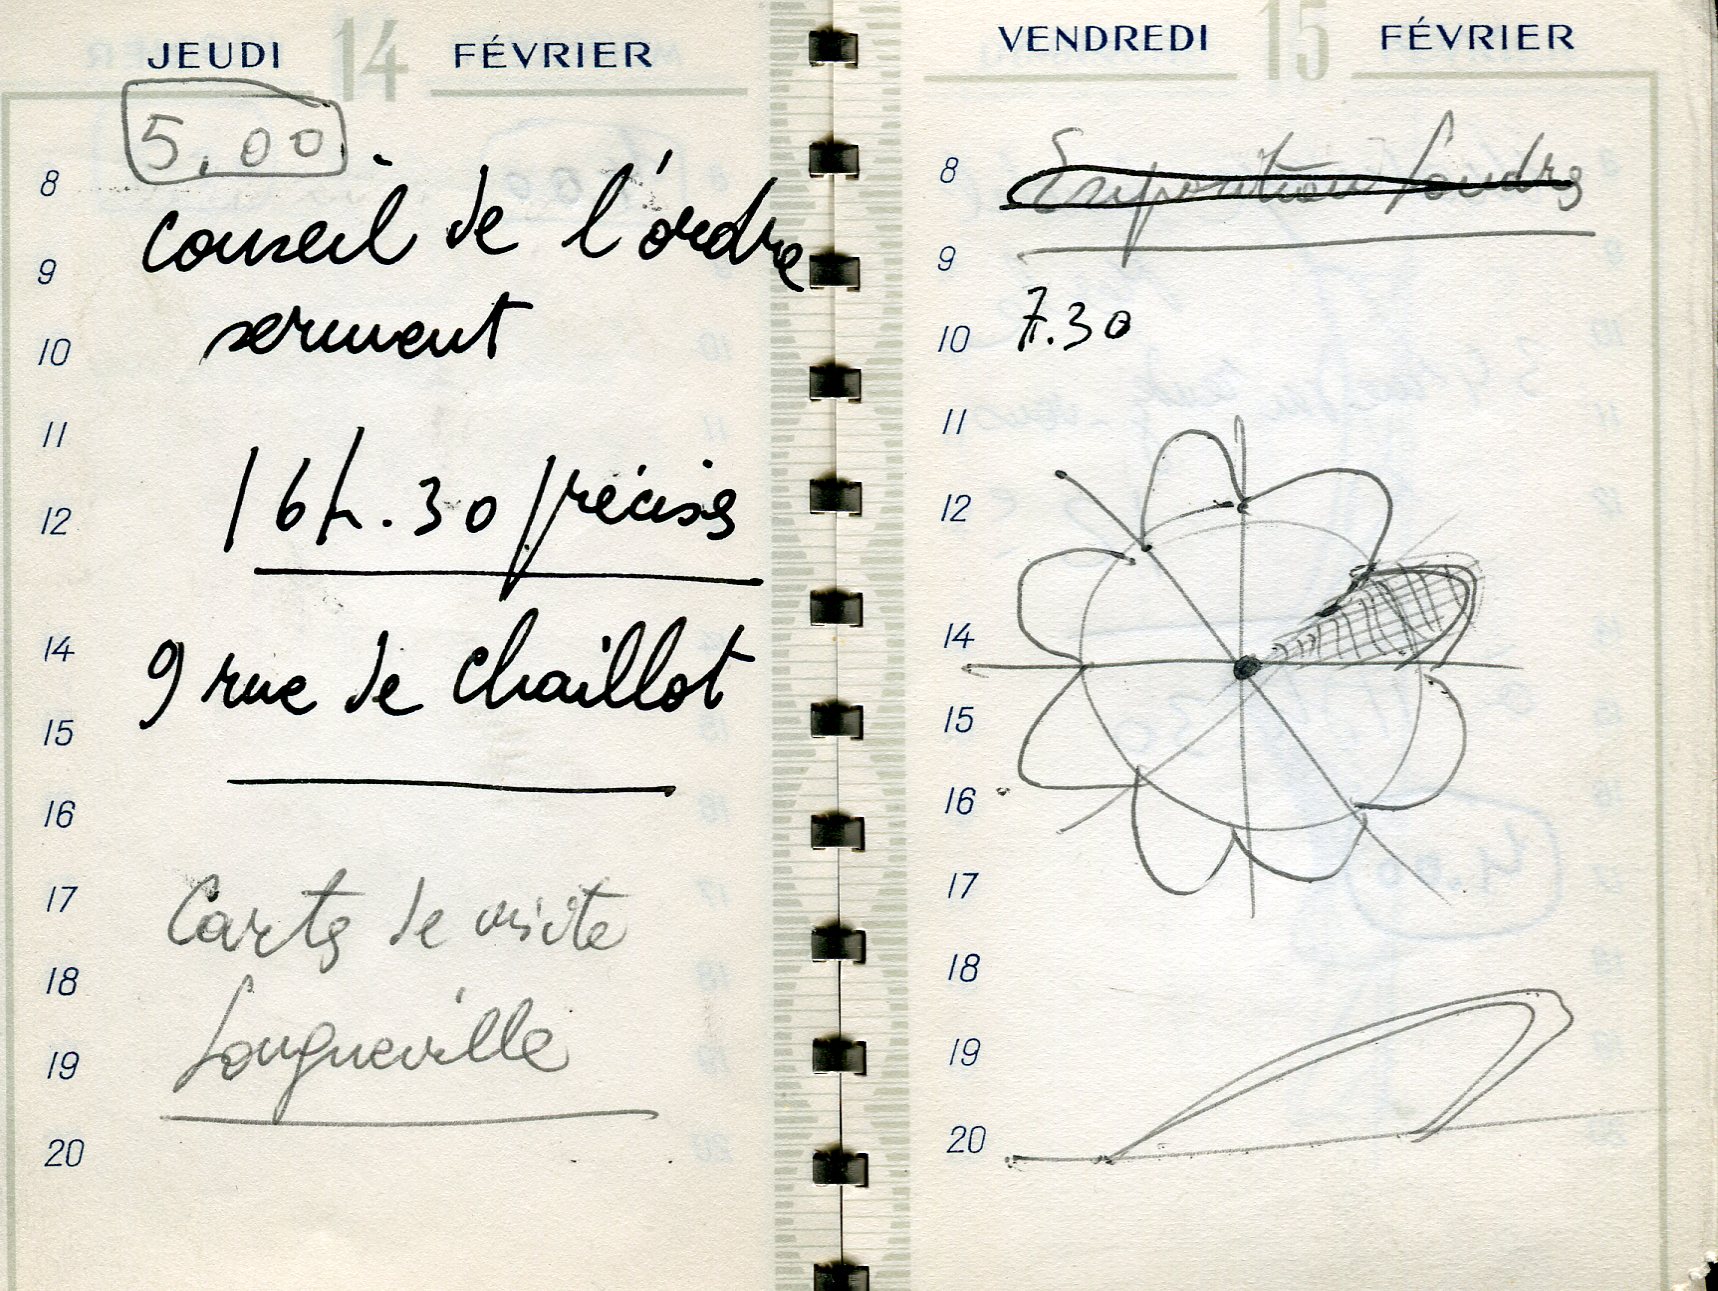 JEUDI 14 FÉVRIER
5.00
8
conseil de l'ordre
9
serment
10
11
16h.30 précises
12
14
9 rue de Chaillot
15
16
17
Cartes de visite
18
Longueville
19
20
VENDREDI 15 FÉVRIER
8
Exposition Londres
9
7.30
10
11
12
14
15
16
17
18
19
20